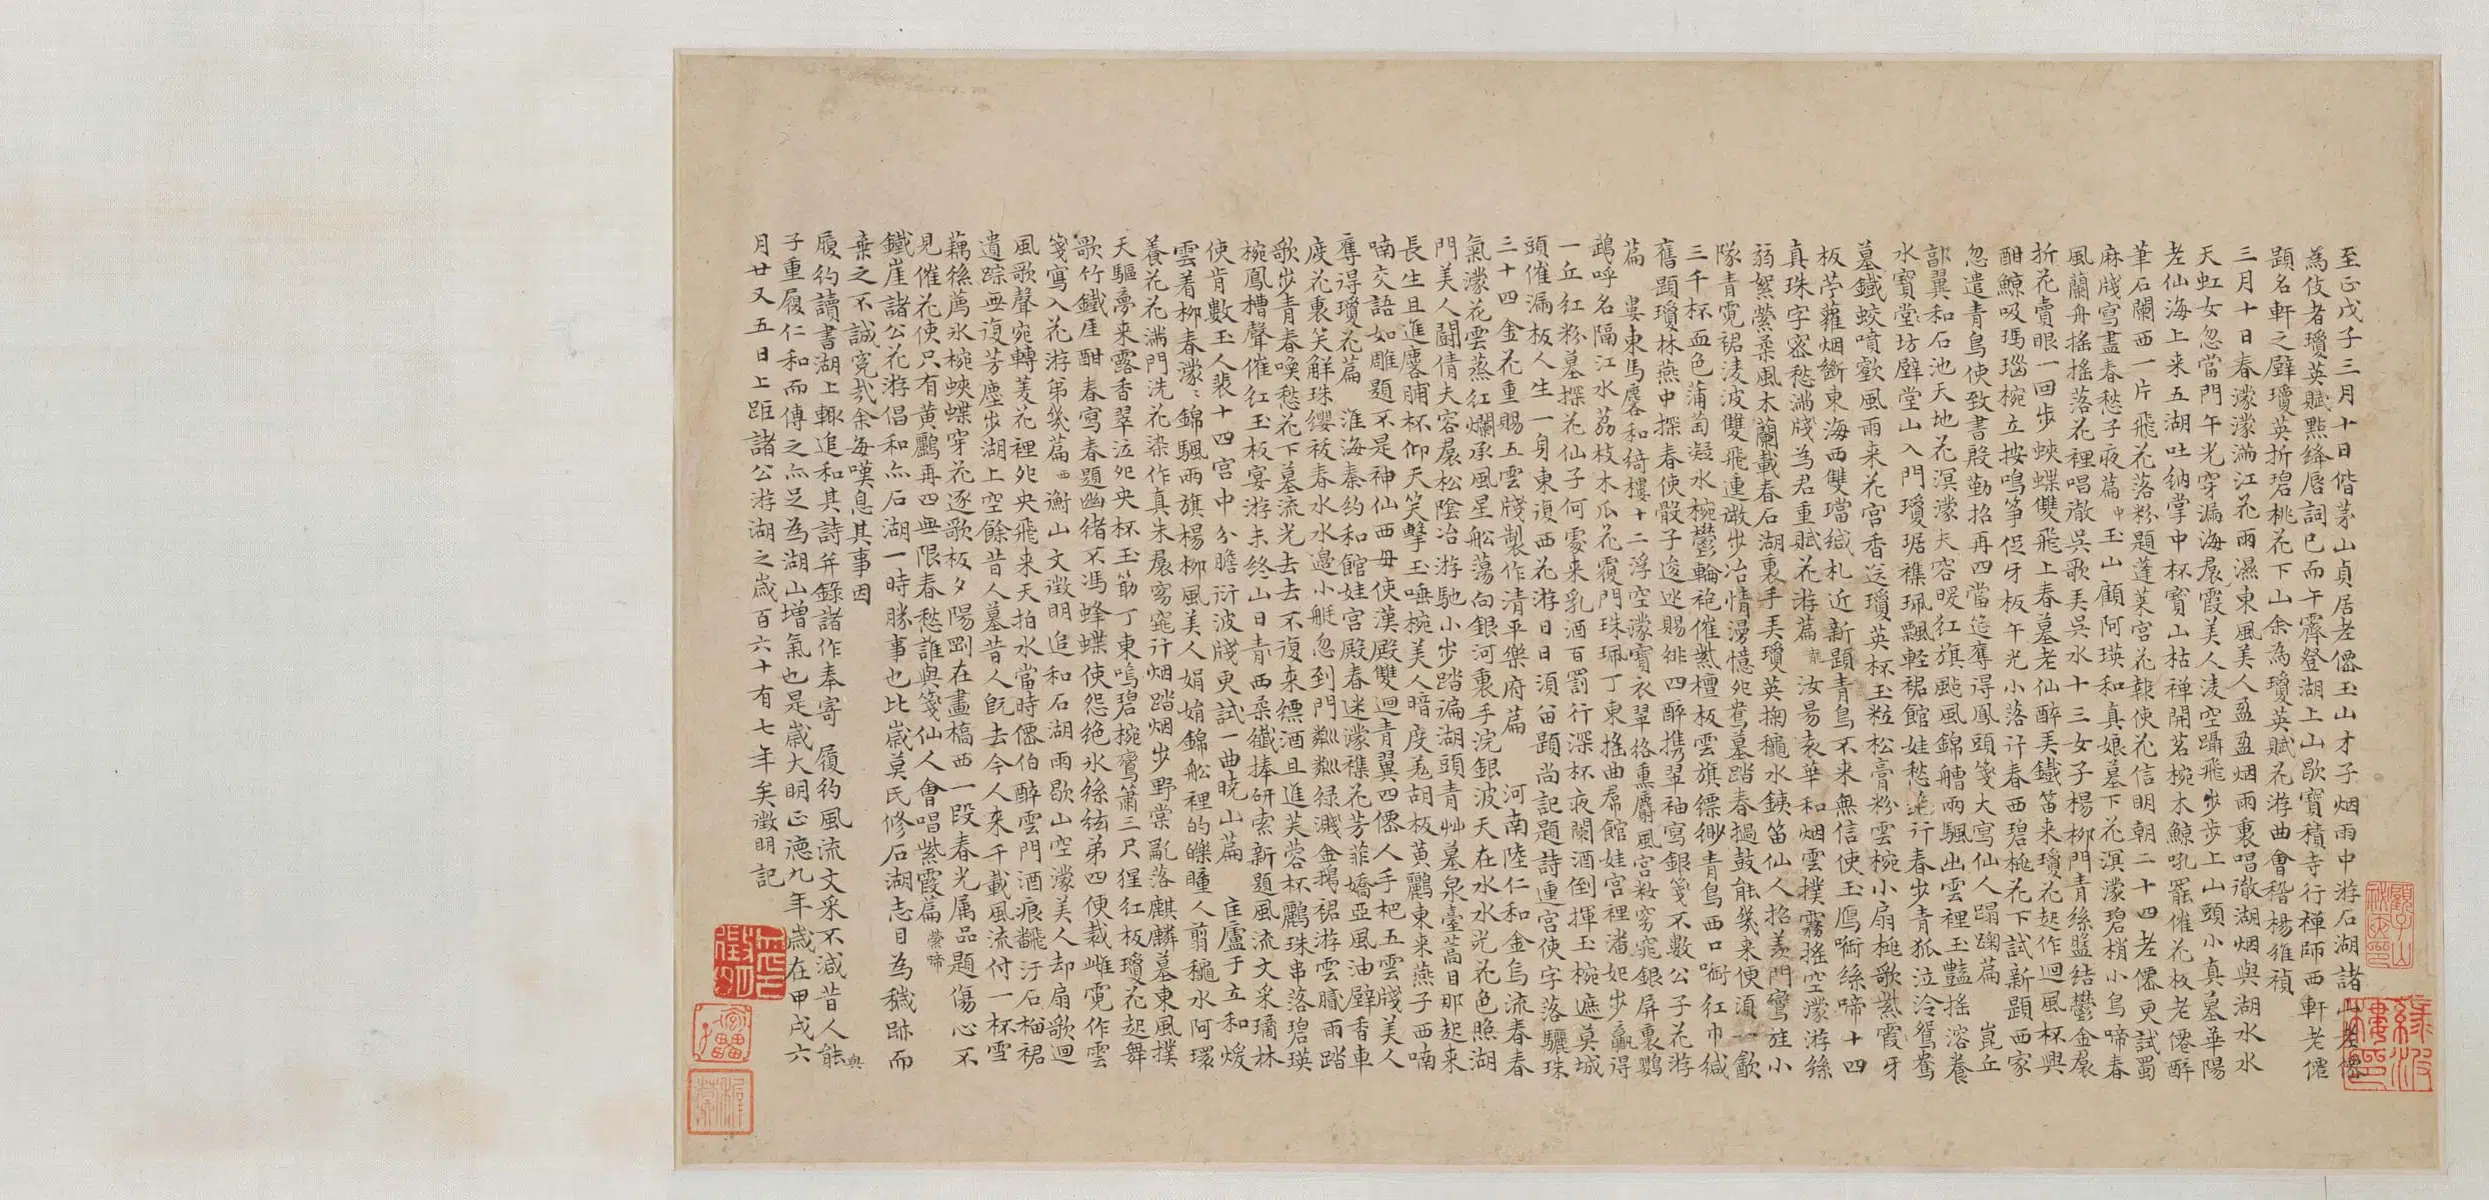 至正戊子三月十日偕茅山貞居老僊玉山才子烟雨中游石湖諸山老僊
為伎者瓊英賦點絳唇詞已而午霽登湖上山歇寶積寺行禅師西軒老僊
題名軒之壁瓊英折碧桃花下山余為瓊英賦花游曲會稽楊維禎
三月十日春濛濛滿江花雨濕東風美人盈盈烟雨裏唱徹湖烟與湖水水
天虹女忽當門午光穿漏海裠霞美人凌空躡飛步步上山頭小真墓華陽
老仙海上来五湖吐納掌中杯寶山枯禅開茗椀木鯨吼罷催花板老僊醉
筆石闌西一片飛花落粉題蓬莱宮花報使花信明朝二十四老僊更試蜀
麻牋寫盡春愁子夜篇 玉山顧阿瑛和真娘墓下花溟濛碧梢小鳥啼春
風蘭舟搖搖落花裡唱徹吳歌弄吳水十三女子楊柳門青絲盤結鬱金裠
折花賣眼一回步蛺蝶雙飛上春墓老仙醉弄鐵笛来瓊花起作迴風杯興
酣鯨吸瑪瑙椀立按鳴筝促牙板午光小落行春西碧桃花下試新題西家
忽遣青鳥使致書殷勤招再四當筵奪得鳳頭箋大寫仙人蹋踘篇 崑丘
郭翼和石池天地花溟濛夫容暖紅旗颭風錦艚兩颿出雲裡玉豔搖溶養
水寶堂坊壁堂山入門瓊琚襍珮飄輕裙館娃愁絶行春步青狐泣冷鴛鴦
墓鐵蛟噴歡風雨来花宮香送瓊英杯玉粒松膏粉雲椀小扇桃歌紫霞牙
板苧蘿烟斷東海西雙璫緘札近新題青鳥不来無信使玉鴈啣絲啼十四
真珠字密愁滿牋為君重賦花游篇 汝昜袁華和烟雲撲霧搖空濛游絲
弱絮縈桑風木蘭載春石湖裏手弄瓊英掬龝水鐵笛仙人招羨門鸞旌小
隊青霓裙淩波雙飛連㣲步冶情漫憶死鴦墓踏春撾鼓能幾来便須一飲
三千杯面色蒲萄凝水椀鬱輪袍催紫檀板雲旗縹緲青鳥西口啣紅巾緘
舊題瓊林燕中探春使骰子逡巡賜緋四醉携翠袖寫銀箋不數公子花游
篇 婁東馬麐和綺樓十二浮空濛寶衣翠絡熏麝風宮粧窈窕銀屏裏鸚
鵡呼名隔江水荔枝木瓜花覆門珠珮丁東搖曲裠館娃宮裡潘妃步贏得
一丘紅粉墓探花仙子何處来乳酒百罰行深杯夜闌酒倒揮玉椀遮莫城
頭催漏板人生一身東復西花游日日須留題尚記題詩連宮使字落驪珠
三十四金花重賜五雲牋製作清平樂府篇 河南陸仁和金烏流春春
氣濛花雲蒸紅爛承風星舩蕩向銀河裏手浣銀波天在水水光花色照湖
門美人闘倩夫容裠松陰冶游馳小步踏遍湖頭青艸墓泉臺蒿目那起来
長生且進麐脯杯仰天笑擊玉唾椀美人暗度羌胡板黄鸝東来燕子西喃
喃交語如雕題不是神仙西母使漢殿雙迴青翼四僊人手杷五雲牋美人
奪得瓊花篇 淮海秦約和館娃宮殿春迷濛襍花芳菲嬌亞風油壁香車
度花裏笑解珠纓袚春水水邉小艇忽到門粼粼緑濺金鵝裙游雲膩雨踏
歌步青春喚愁花下墓流光去去不復来縹酒旦進芙蓉杯鸝珠串落碧瑛
椀鳳槽聲催紅玉板宴游未終山日青西桑纖捧研索新題風流文采璚林
使肯數玉人裴十四宮中分贍衍波牋更試一曲晓山篇 匡廬于立和煖
雲着柳春濛濛錦颿兩旗楊柳風美人娟娟錦舩裡的皪瞳人剪龝水阿環
養花花滿門洗花染作真朱裠窈窕行烟踏烟步野棠亂落麒麟墓東風撲
天驅夢来露香翠泣死央杯玉筯丁東鳴碧椀鸞簫三尺猩紅板瓊花起舞
歌竹鐵厓酣春寫春題幽緒不馮蜂蝶使怨絶氷絲絃弟四便裁雌霓作雲
箋寫入花游弟幾篇 衡山文徵明追和石湖雨歇山空濛美人却扇歌迴
風歌聲宛轉菱花裡死央飛来天拍水當時僊伯醉雲門酒痕飜汙石榴裙
遺踪毋復芳塵步湖上空餘昔人墓昔人旣去今人来千載風流付一杯雪
藕絲薦氷椀蛺蝶穿花逐歌板夕陽剛在畫橋西一段春光属品題傷心不
見催花使只有黄鸝再四無限春愁誰與箋仙人會唱紫霞篇
鐵崖諸公花游倡和亦石湖一時勝事也比嵗莫氏修石湖志目為穢跡而
棄之不誠寃哉余每嘆息其事因
履約讀書湖上輙追和其詩并錄諸作奉寄 履約風流文采不减昔人能與
子重履仁和而傳之亦足為湖山增氣也是嵗大明正德九年嵗在甲戌六
月廿又五日上距諸公游湖之嵗百六十有七年矣徵明記